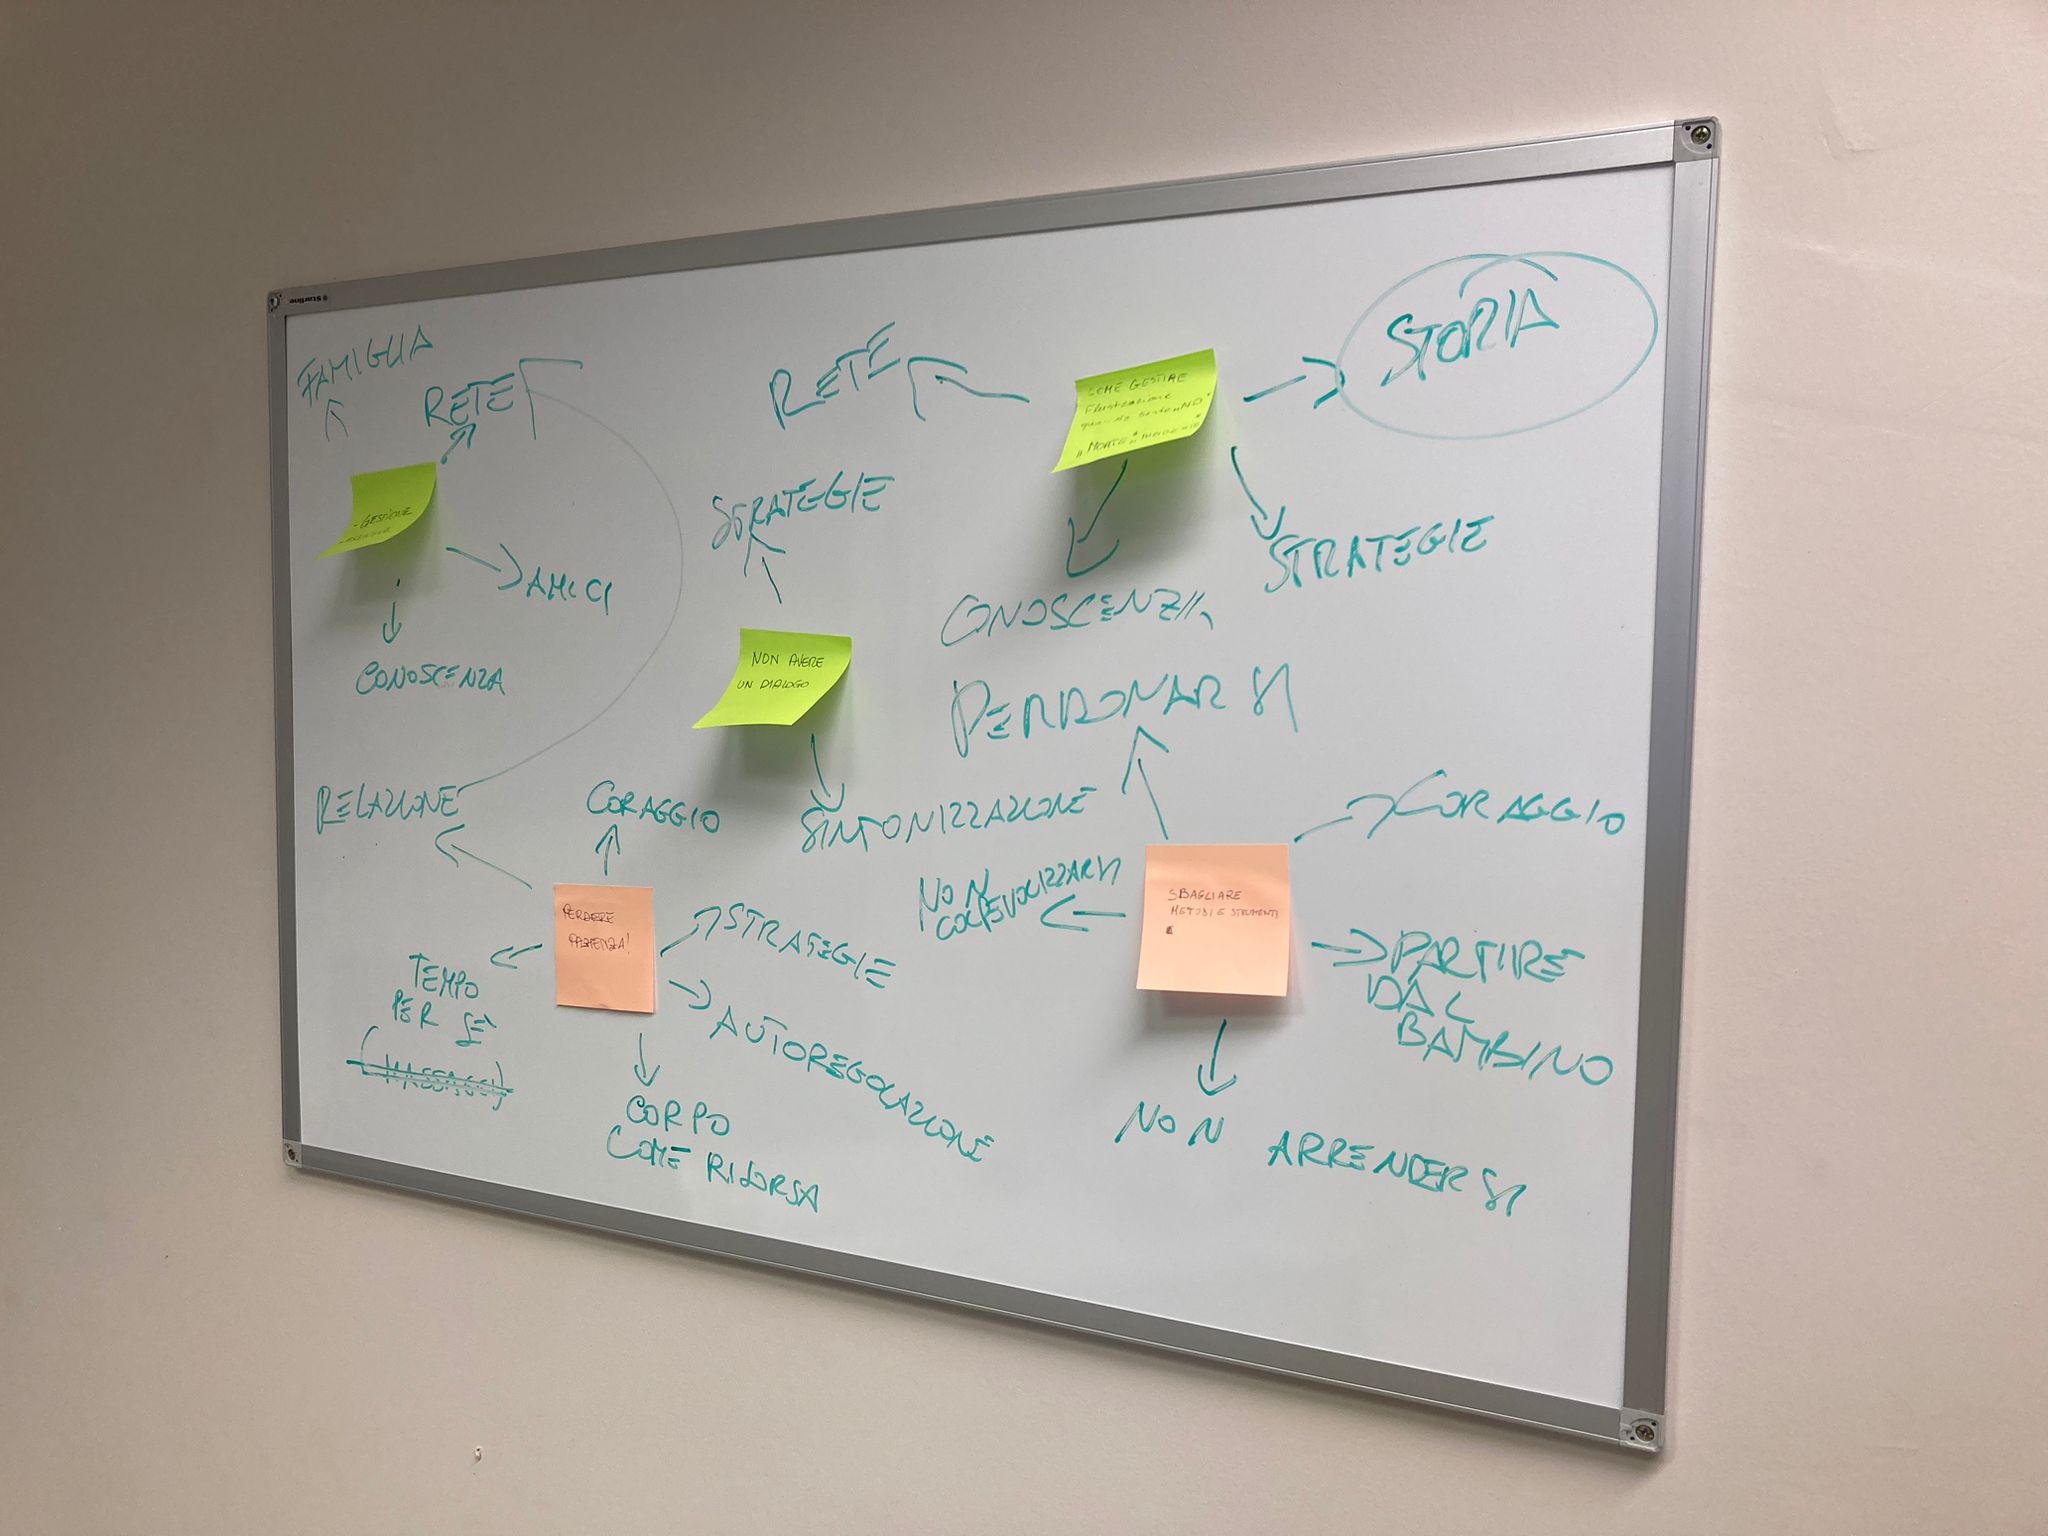 Starline
FAMIGLIA
RETE
- GESTIONE
AMICI
CONOSCENZA
RETE
COME GESTIRE
Frustrazione
"MORTE"
STORIA
STRATEGIE
CONOSCENZA
STRATEGIE
NON AVERE
UN DIALOGO
SINTONIZZAZIONE
RELAZIONE
CORAGGIO
PERDERE
PAZIENZA!
STRATEGIE
AUTOREGOLAZIONE
CORPO
COME RISORSA
TEMPO
PER SÈ
(MASSAGGI)
PERDONARSI
CORAGGIO
SBAGLIARE
METODI E STRUMENTI
NON
COLPEVOLIZZARSI
PARTIRE
DAL
BAMBINO
NON ARRENDERSI